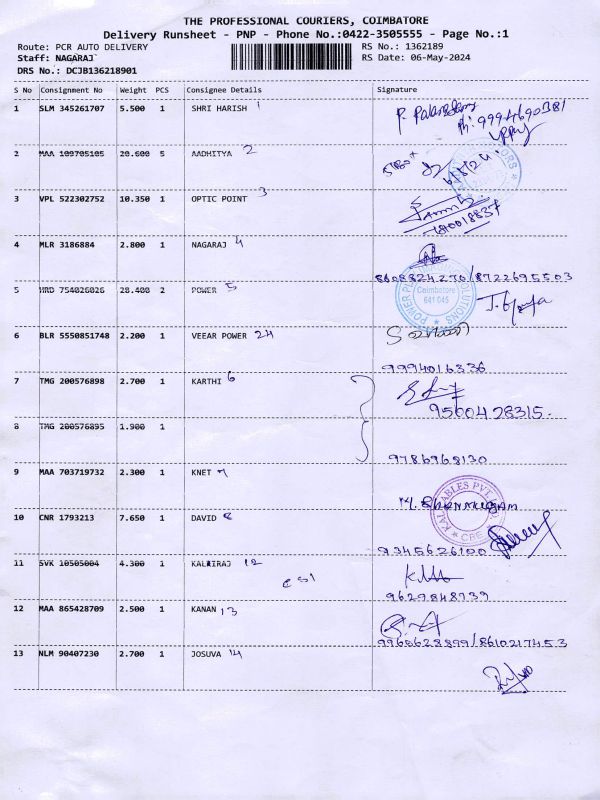 THE PROFESSIONAL COURIERS, COIMBATORE
Delivery Runsheet - PNP - Phone No.:0422-3505555 - Page No.:1
Route: PCR AUTO DELIVERY RS No.: 1362189
Staff: NAGARAJ RS Date: 06-May-2024
DRS No.: DCJB136218901
S No Consignment No Weight PCS Consignee Details Signature
1 SLM 345261707 5.500 1 SHRI HARISH 1
Ph: 9994690381
2 MAA 109705105 20.600 5 AADHITYA 2
6/5/24
3 VPL 522302752 10.350 1 OPTIC POINT 3
4 MLR 3186884 2.800 1 NAGARAJ 4
8608824270/8722695503
5 HRD 754026026 28.400 2 POWER 5
Coimbatore
641 045
6 BLR 5550851748 2.200 1 VEEAR POWER 24
9994016336
7 TMG 200576898 2.700 1 KARTHI 6
9500428315.
8 TMG 200576895 1.900 1
9786968130
9 MAA 703719732 2.300 1 KNET 7
M. SHANMUGAM
10 CNR 1793213 7.650 1 DAVID 8
CBE
9345626100
11 SVK 10505004 4.300 1 KALRIRAJ 12
9629848939
12 MAA 865428709 2.500 1 KANAN 13
9968628899/8610217453
13 NLM 90407230 2.700 1 JOSUVA 14